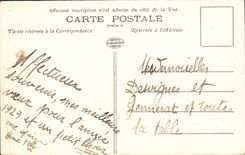 Aucune inscription n'est admise du côté de la Vue
CARTE POSTALE
Partie réservée à la Correspondance
Réservée à l'Adresse
Affectueux
souvenir, mes meilleurs
vœux pour l'année
1929 et un petit
Mesdemoiselles
Desvignes et
et toute
la table